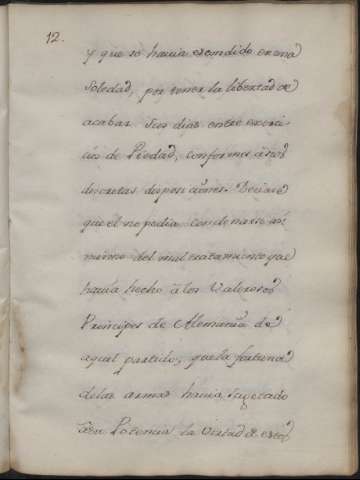 12.
y que se havia escondido en una
Soledad, por tener la libertad de
acabar sus dias entre exerci-
cios de Piedad, conformes à sus
discretas disposiciones. Deciase
que el no podia condenarse asi
mismo del mal tratamiento que
havia hecho à los Valerosos
Principes de Alemania de
aquel partido, que la fortuna
de las armas havia sugetado
à su Potencia la virtud de estos